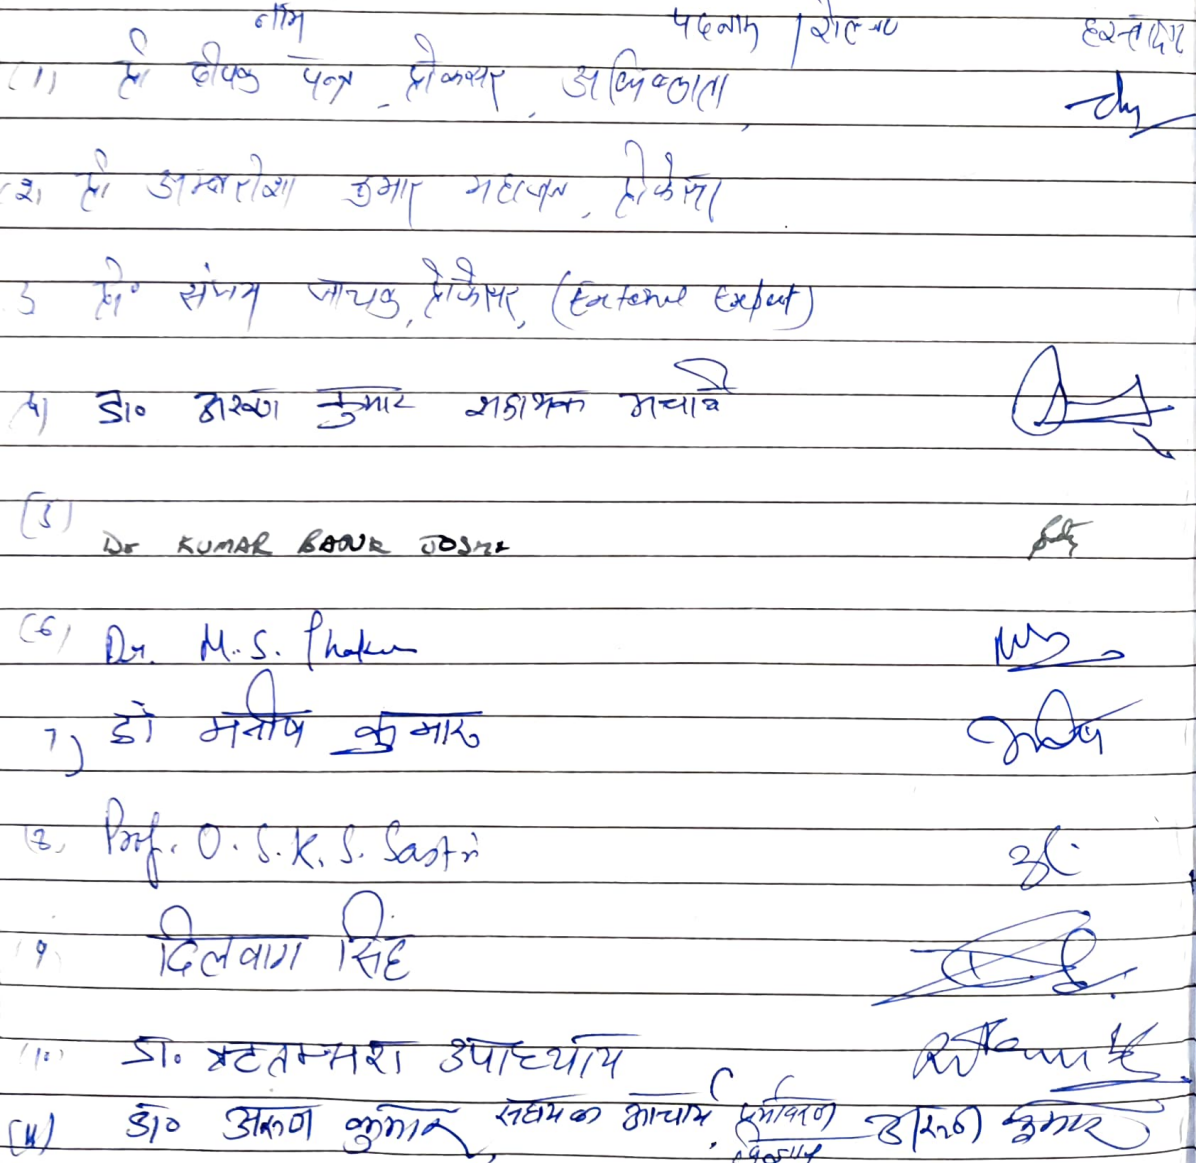 नाम पदनाम / रोल नं० हस्ताक्षर
(1) प्रो दीपक पन्त, प्रोफेसर, अधिष्ठाता
(2) प्रो अम्बरीश कुमार महाजन, प्रोफेसर
3 प्रो० संजय नायक, प्रोफेसर, (External Expert)
4) डा० अरुण कुमार सहायक आचार्य
(5) Dr KUMAR JOSHI
(6) Dr. M.S. Thakur
7) डॉ मनीष कुमार
(8) Prof. O.S.K.S. Sastri
9 दिलबाग सिंह
(10) डा. ऋतम्भरा उपाध्याय
(11) डा० अरुण कुमार, सहायक आचार्य, पर्यावरण अरुण कुमार
विज्ञान